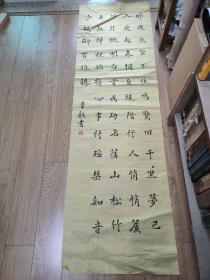 昨夜寒蛩不住鳴驚回千里夢已
三更起來獨自繞階行人悄悄簾
外月朧明白首為功名舊山松竹
老阻歸程欲將心事付瑤琴知音
少絃斷有誰聽